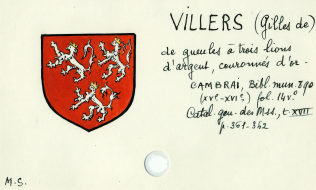 VILLERS (Gilles de)
de gueules à trois lions
d'argent, couronnés d'or-
CAMBRAI, Bibl. mun. 890
(XVe-XVIe) fol. 14vo
Catal. gén. des Mss., t. XVII
p. 361-342
M.S.